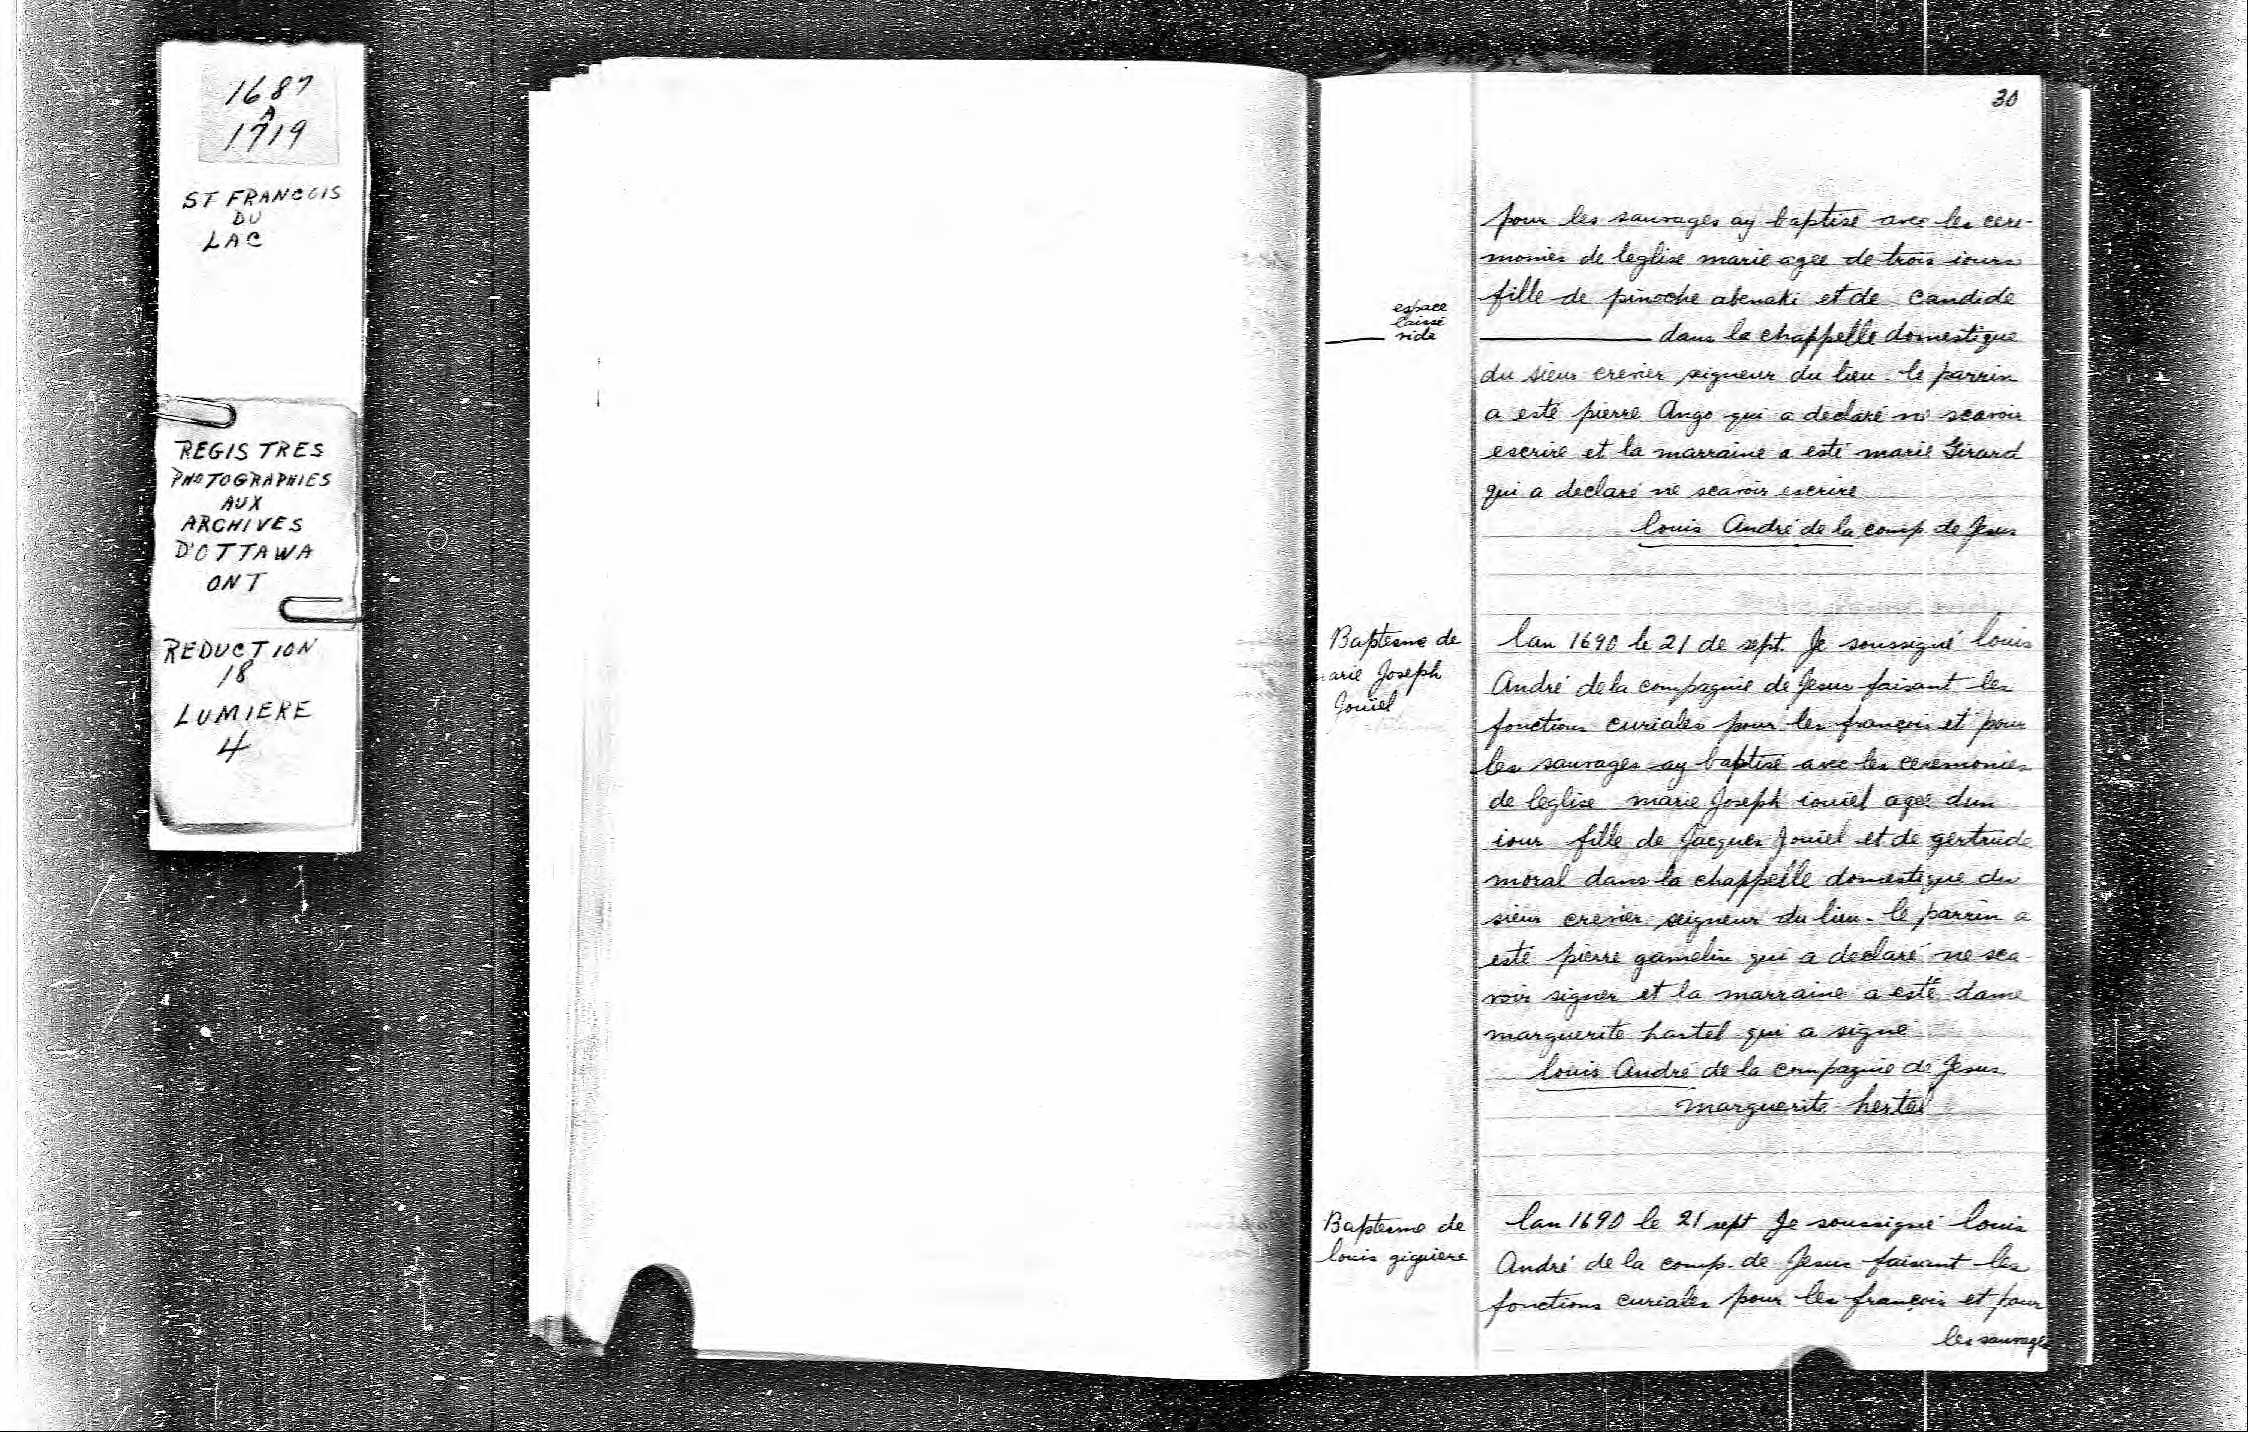 1687
A
1719
ST FRANCOIS
DU
LAC
REGISTRES
PHOTOGRAPHIES
AUX
ARCHIVES
D'OTTAWA
ONT
REDUCTION
18
LUMIERE
4
30
pour les sauvages ay baptisé avec les cere-
monies de leglise marie agee de trois iours
fille de pinoche abenaki et de candide
espace
laissé
vide
dans la chappelle domestique
du sieur crevier seigneur du lieu. le parrin
a esté pierre Ango qui a declaré ne scavoir
escrire et la marraine a esté marie Girard
qui a declaré ne scavoir escrire
louis André de la comp. de Jesus
Baptesme de
marie Joseph
Jouiel
lan 1690 le 21 de sept. Je soussigné louis
André de la compagnie de Jesus faisant les
fonctions curiales pour les françois et pour
les sauvages ay baptisé avec les ceremonies
de leglise marie Joseph iouiel agée dun
iour fille de Jacques Jouiel et de gertrude
moral dans la chappelle domestique du
sieur crevier seigneur du lieu. le parrin a
esté pierre gamelin qui a declaré ne sca-
voir signer et la marraine a esté dame
marguerite hartel qui a signé
louis André de la compagnie de Jesus
marguerite hertel
Baptesme de
louis giguiere
lan 1690 le 21 sept Je soussigné louis
André de la comp. de Jesus faisant les
fonctions curiales pour les françois et pour
les sauvages